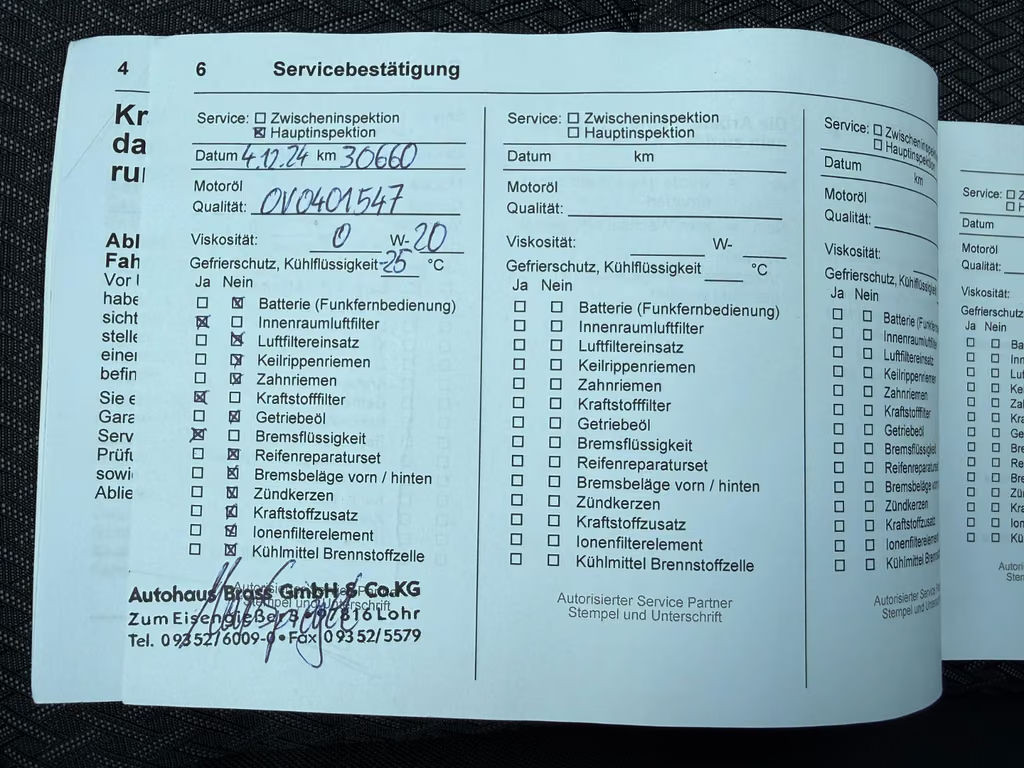 4
Kr
da
ru
Abl
Fah
Vor
habe
sicht
stelle
einer
befin
Sie e
Gara
Serv
Prüf
sowi
Ablie
6 Servicebestätigung
Service: ☐ Zwischeninspektion
☒ Hauptinspektion
Datum 4.12.24 km 30660
Motoröl
Qualität: OV0401547
Viskosität: 0 W-20
Gefrierschutz, Kühlflüssigkeit -25 °C
Ja Nein
☐ ☒ Batterie (Funkfernbedienung)
☒ ☐ Innenraumluftfilter
☐ ☒ Luftfiltereinsatz
☐ ☒ Keilrippenriemen
☐ ☒ Zahnriemen
☒ ☐ Kraftstofffilter
☐ ☒ Getriebeöl
☒ ☐ Bremsflüssigkeit
☐ ☒ Reifenreparaturset
☐ ☒ Bremsbeläge vorn / hinten
☐ ☒ Zündkerzen
☐ ☒ Kraftstoffzusatz
☐ ☒ Ionenfilterelement
☐ ☒ Kühlmittel Brennstoffzelle
Autorisierter Service Partner
Stempel und Unterschrift
Autohaus Brass GmbH & Co.KG
Zum Eisengießer 97816 Lohr
Tel. 09352/6009-0 • Fax 09352/5579
Service: ☐ Zwischeninspektion
☐ Hauptinspektion
Datum km
Motoröl
Qualität:
Viskosität: W-
Gefrierschutz, Kühlflüssigkeit °C
Ja Nein
☐ ☐ Batterie (Funkfernbedienung)
☐ ☐ Innenraumluftfilter
☐ ☐ Luftfiltereinsatz
☐ ☐ Keilrippenriemen
☐ ☐ Zahnriemen
☐ ☐ Kraftstofffilter
☐ ☐ Getriebeöl
☐ ☐ Bremsflüssigkeit
☐ ☐ Reifenreparaturset
☐ ☐ Bremsbeläge vorn / hinten
☐ ☐ Zündkerzen
☐ ☐ Kraftstoffzusatz
☐ ☐ Ionenfilterelement
☐ ☐ Kühlmittel Brennstoffzelle
Autorisierter Service Partner
Stempel und Unterschrift
Service: ☐ Zwischeninspektion
☐ Hauptinspektion
Datum km
Motoröl
Qualität:
Viskosität:
Gefrierschutz, Kühlflüssigkeit
Ja Nein
☐ ☐ Batterie (Funkfe
☐ ☐ Innenraumluftfilte
☐ ☐ Luftfiltereinsatz
☐ ☐ Keilrippenriemen
☐ ☐ Zahnriemen
☐ ☐ Kraftstofffilter
☐ ☐ Getriebeöl
☐ ☐ Bremsflüssigkeit
☐ ☐ Reifenreparaturse
☐ ☐ Bremsbeläge vor
☐ ☐ Zündkerzen
☐ ☐ Kraftstoffzusatz
☐ ☐ Ionenfilterelement
☐ ☐ Kühlmittel Brenns
Autorisierter Service
Stempel und Unter
Service: ☐ Z
☐ H
Datum
Motoröl
Qualität:
Viskosität:
Gefrierschutz
Ja Nein
☐ ☐ Ba
☐ ☐ Inn
☐ ☐ Lu
☐ ☐ Ke
☐ ☐ Za
☐ ☐ Kra
☐ ☐ Ge
☐ ☐ Bre
☐ ☐ Re
☐ ☐ Bre
☐ ☐ Zü
☐ ☐ Kra
☐ ☐ Ion
☐ ☐ Kü
Autori
Stem